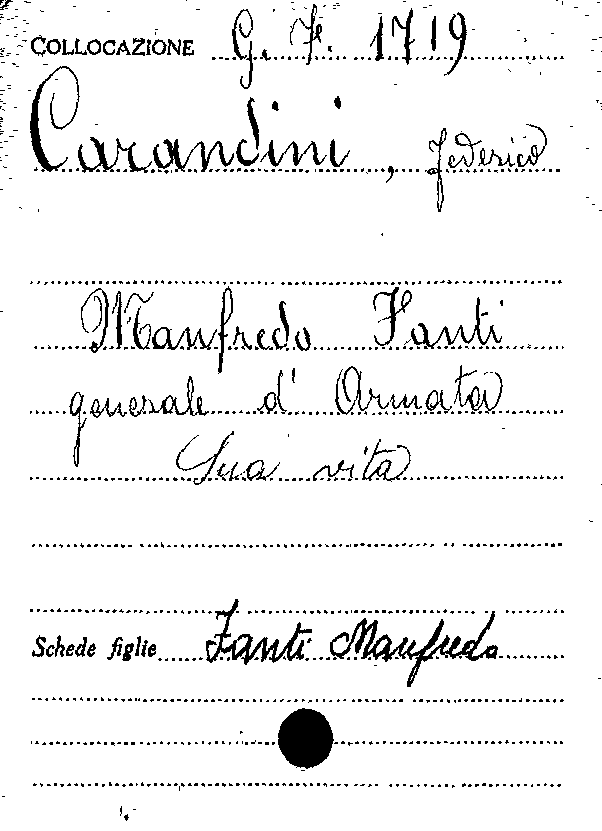 COLLOCAZIONE G. F. 1719
Carandini, Federico
Manfredo Fanti
generale d'Armata
Sua vita
Schede figlie Fanti Manfredo